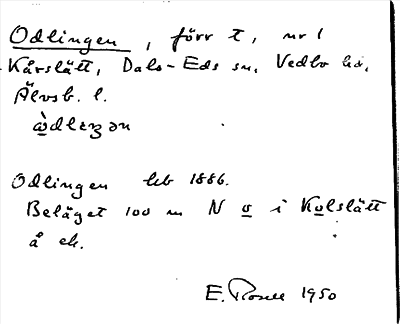 Odlingen, förr t, nr 1
Kårslätt, Dals-Eds sn, Vedbo hd,
Älvsb. l.
Odlingen lth 1886.
Beläget 100 m N o i Kolslätt
å ek.
E. Rosell 1950